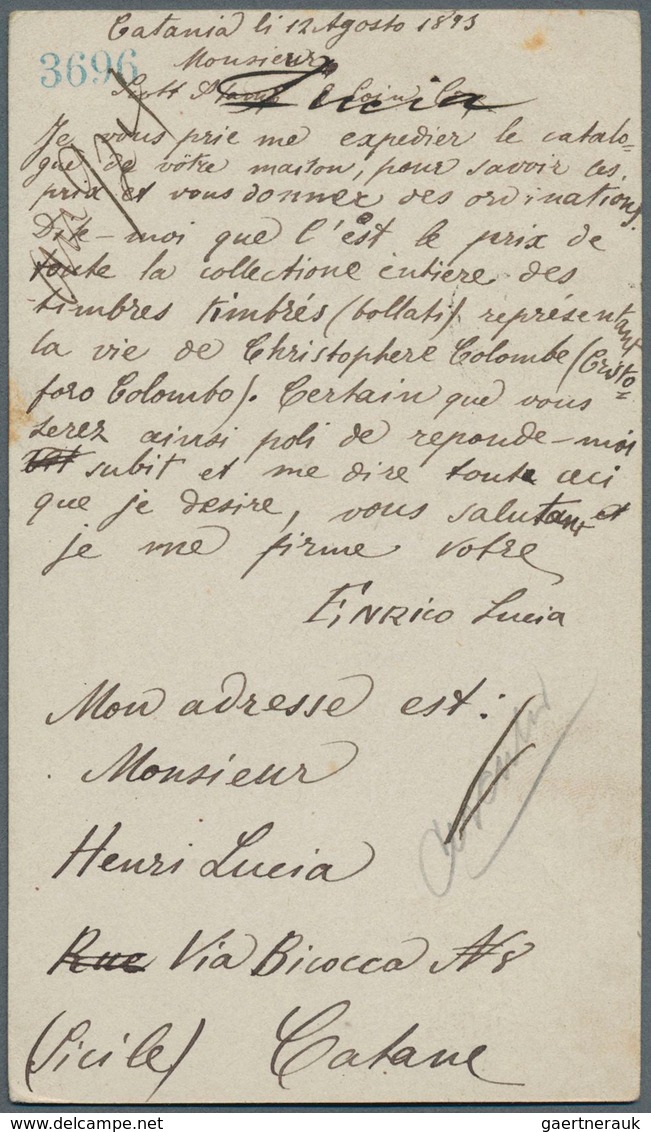 Catania li 12 Agosto 1893
3696
Monsieur
Scott Stamp & Coin Co
Lucia
Je vous prie me expedier le catalo=
gue de vôtre maison, pour savoir les
prix et vous donner des ordinations.
Dite-moi que l'est le prix de
toute la collectione entiere des
timbres timbrés (bollati) représentant
la vie de Christophere Colombe (Cristo=
foro Colombo). Certain que vous
serez ainsi poli de reponde-moi
subit et me dire toute ceci
que je desire, vous salutant et
je me firme votre
Enrico Lucia
Mon adresse est:
Monsieur
Henri Lucia
Rue Via Bicocca N 8
(Sicile) Catane
gaertnerauk